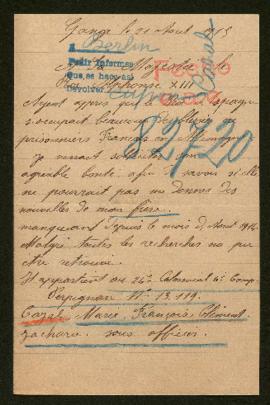 Ganges le 21 Août 1915
A
Berlin
Pedir informes
Que se hace así
devolver
A Sa Majesté le
Roi Alphonse XIII
Ayant appris que le Roi
s'occupait beaucoup
prisonniers Français en Allemagne
je viens solliciter son
agréable bonté afin de savoir si elle
ne pourrait pas me donner des
nouvelles de mon frère
manquant depuis le mois d'Août 1914
Malgré toutes les recherches n'a pu
être retrouvé.
Il appartient au 24e Colonial 4e Comp
Perpignan No 13.119.
Marie, François, Clément
Zacharie. sous officier.
82720